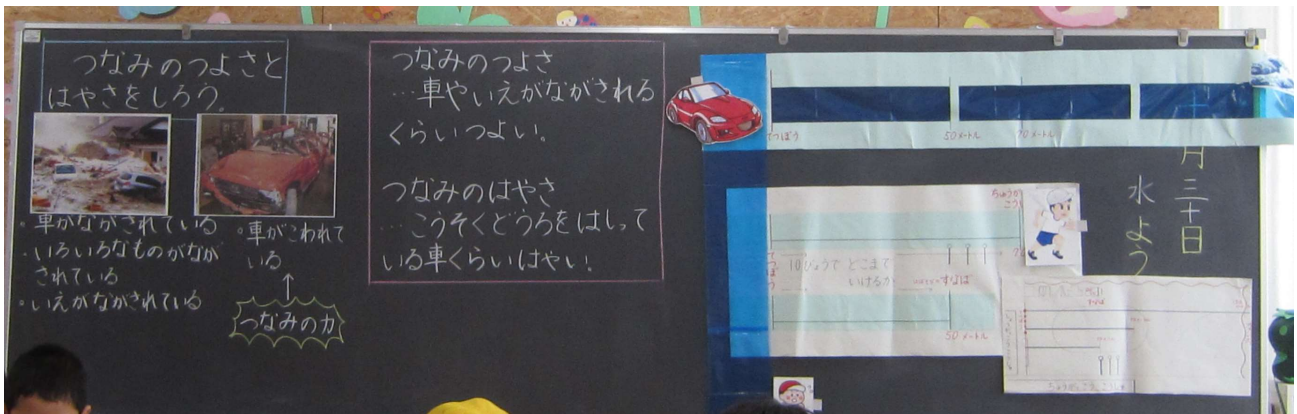 つなみのつよさと
はやさをしろう。
・車がながされている
・いろいろなものがなが
されている
・いえがながされている
・車がこわれて
いる
つなみの力
つなみのつよさ
…車やいえがながされる
くらいつよい!
つなみのはやさ
…こうそくどうろをはしって
いる車くらいはやい!
てつぼう
50メートル
70メートル
10びょうで どこまで
いけるか
すなば
てつぼう
50メートル
月三十日
水よう